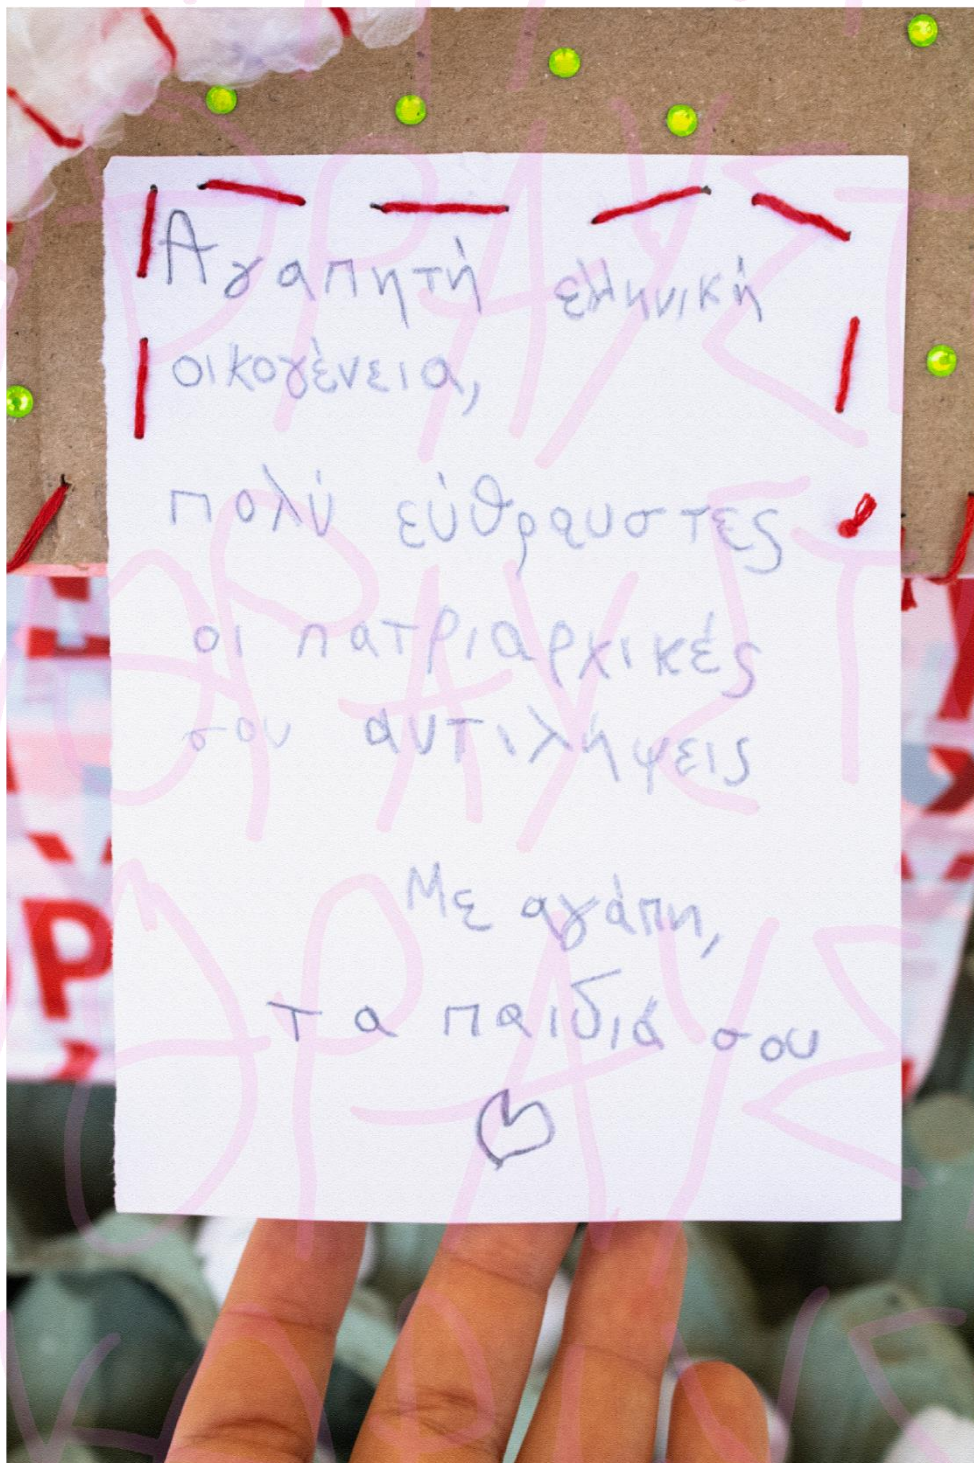 Αγαπητή ελληνική
οικογένεια,
πολύ εύθραυστες
οι πατριαρχικές
σου αντιλήψεις
Με αγάπη,
τα παιδιά σου
Ρ